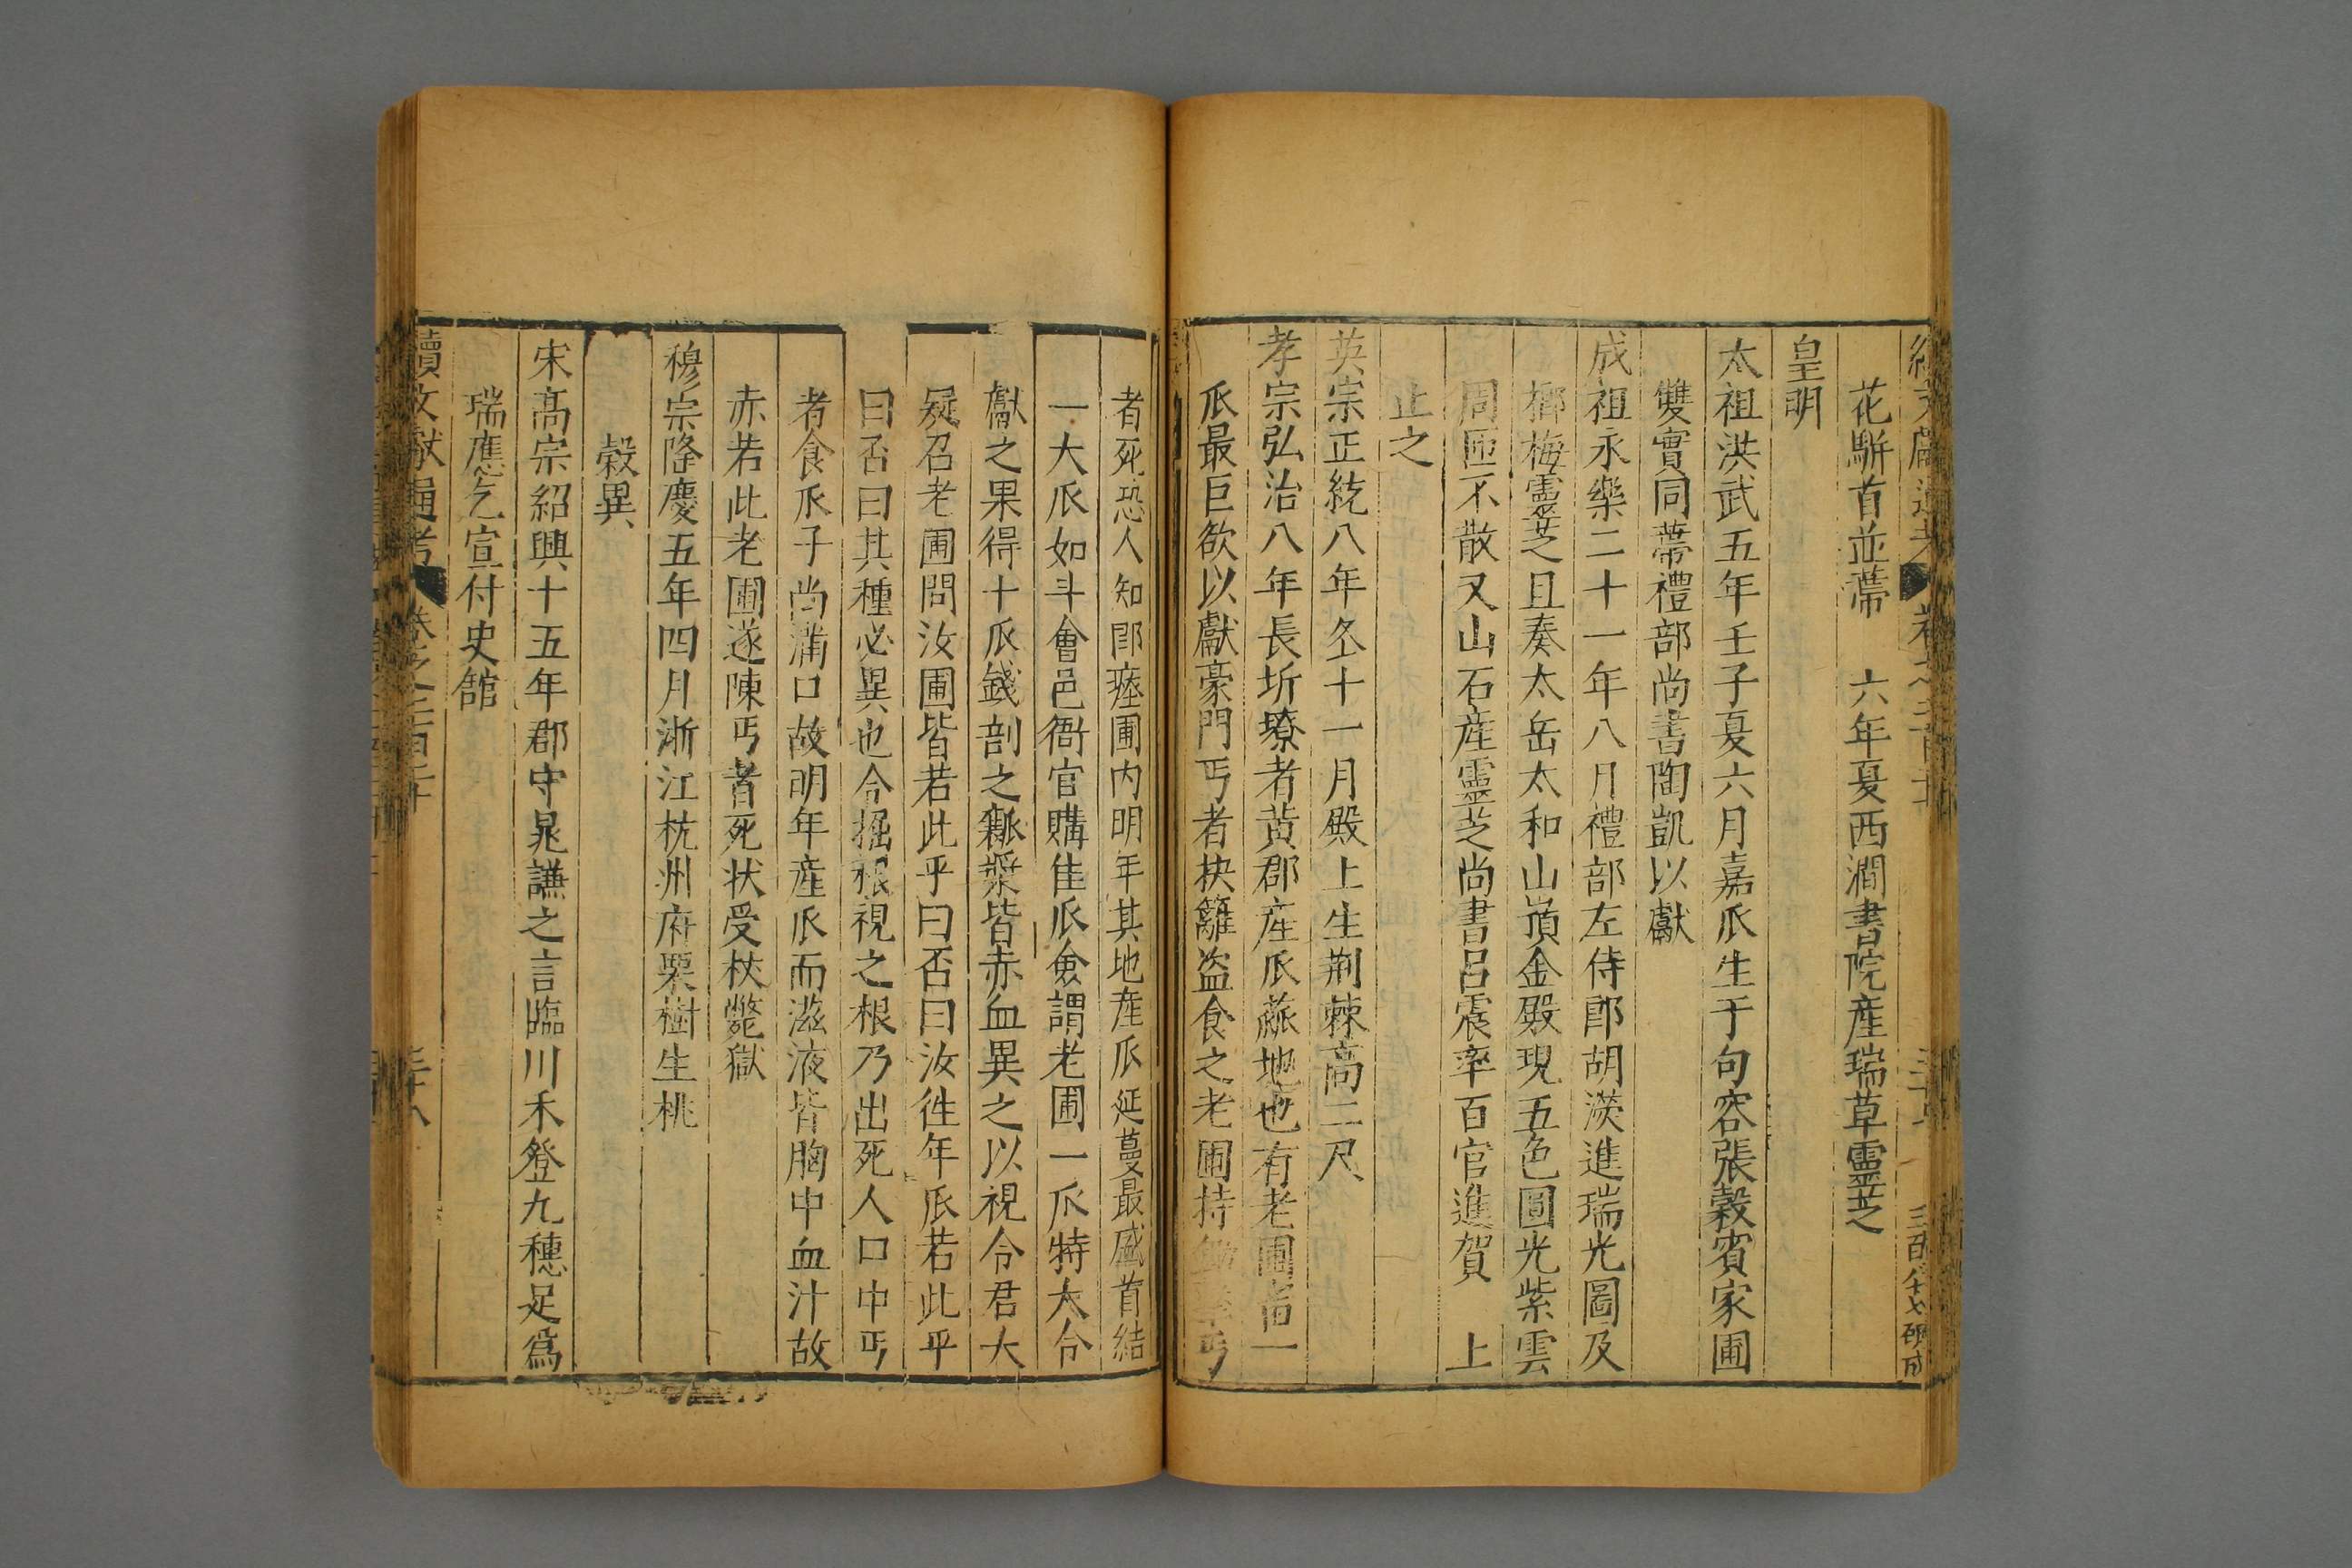 花駢首並蔕　六年夏西澗書院産瑞草靈芝
皇明
太祖洪武五年壬子夏六月嘉瓜生于句容張榖賓家圃
雙實同蔕禮部尚書陶凱以獻
成祖永樂二十一年八月禮部左侍郎胡濙進瑞光圖及
榔梅靈芝且奏太岳太和山頂金殿現五色圓光紫雲
周匝不散又山石産靈芝尚書呂震率百官進賀　上
止之
英宗正統八年冬十一月殿上生荆棘高二尺
孝宗弘治八年長圻墩者黄郡産瓜蓏地也有老圃者一
瓜最巨欲以獻豪門丐者抉籬盗食之老圃持丐
者死恐人知即瘗圃内明年其地産瓜延蔓最盛首結
一大瓜如斗會邑衙官購佳瓜僉謂老圃一瓜特大令
獻之果得十瓜錢剖之瓤漿皆赤血異之以視令君大
疑召老圃問汝圃皆若此乎曰否曰汝徃年瓜若此乎
曰否曰其種必異也令掘根視之根乃出死人口中丐
者食瓜子尚滿口故明年産瓜而滋液皆胸中血汁故
赤若此老圃遂陳丐者死状受杖斃獄
穆宗隆慶五年四月浙江杭州府栗樹生桃
榖異
宋髙宗紹興十五年郡守晁謙之言臨川禾登九穗足爲
瑞應乞宣付史館
續文獻通考　卷之二百二十　三十八